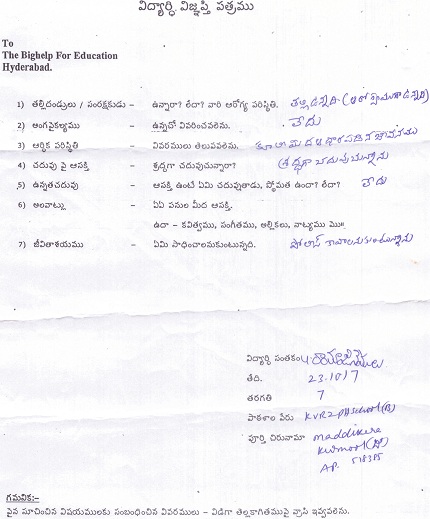 విద్యార్థి విజ్ఞప్తి పత్రము
To
The Bighelp For Education
Hyderabad.
1) తల్లిదండ్రులు / సంరక్షకుడు – ఉన్నారా? లేదా? వారి ఆరోగ్య పరిస్థితి. తల్లి ఉన్నది.
2) అంగవైకల్యము – ఉన్నచో వివరించవలెను. లేదు
3) ఆర్థిక పరిస్థితి – వివరములు తెలుపవలెను.
4) చదువు పై ఆసక్తి – శ్రద్ధగా చదువుచున్నారా? శ్రద్ధగా చదువుచున్నాను
5) ఉన్నతచదువు – ఆసక్తి ఉంటే ఏమి చదువుతాడు, స్థోమత ఉందా? లేదా? లేదు
6) అలవాట్లు – ఏఏ పనుల మీద ఆసక్తి.
ఉదా – కవిత్వము, సంగీతము, అల్లికలు, నాట్యము మొ॥
7) జీవితాశయము – ఏమి సాధించాలనుకుంటున్నది. పోలీస్ కావాలనుకుంటున్నాను
విద్యార్థి సంతకం
తేది. 23.10/7
తరగతి 7
పాఠశాల పేరు KVR
పూర్తి చిరునామా Maddikera
Kurnool
AP. 518385
గమనిక:–
పైన సూచించిన విషయములకు సంబంధించిన వివరములు – విడిగా తెల్లకాగితముపై వ్రాసి ఇవ్వవలెను.